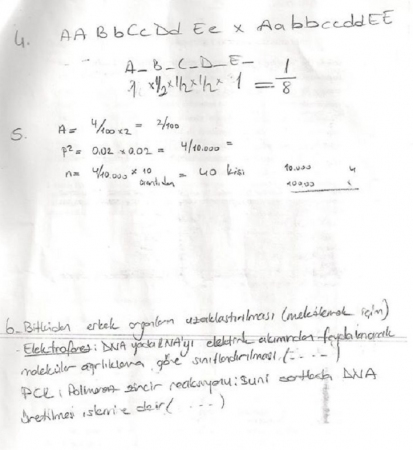 4. AA Bb Cc Dd Ee x Aa bb cc dd EE
A_ B_ C_ D_ E_
1 x 1/2 x 1/2 x 1/2 x 1 = 1/8
5. A = 4/100 x 2 = 2/100
p² = 0.02 x 0.02 = 4/10.000 =
n = 4/10.000 x 10 = 40 kişi
10.000 4
6- Bitkiden erkek organların uzaklaştırılması ( için)
- Elektroforez: DNA yada RNA'yı elektrik akımından faydalanarak
moleküler ağırlıklarına göre sınıflandırılması. (- - - -)
PCR: Polimeraz zincir reaksiyonu: Suni şartlarda DNA
üretilmesi işlemine dair ( . . . )